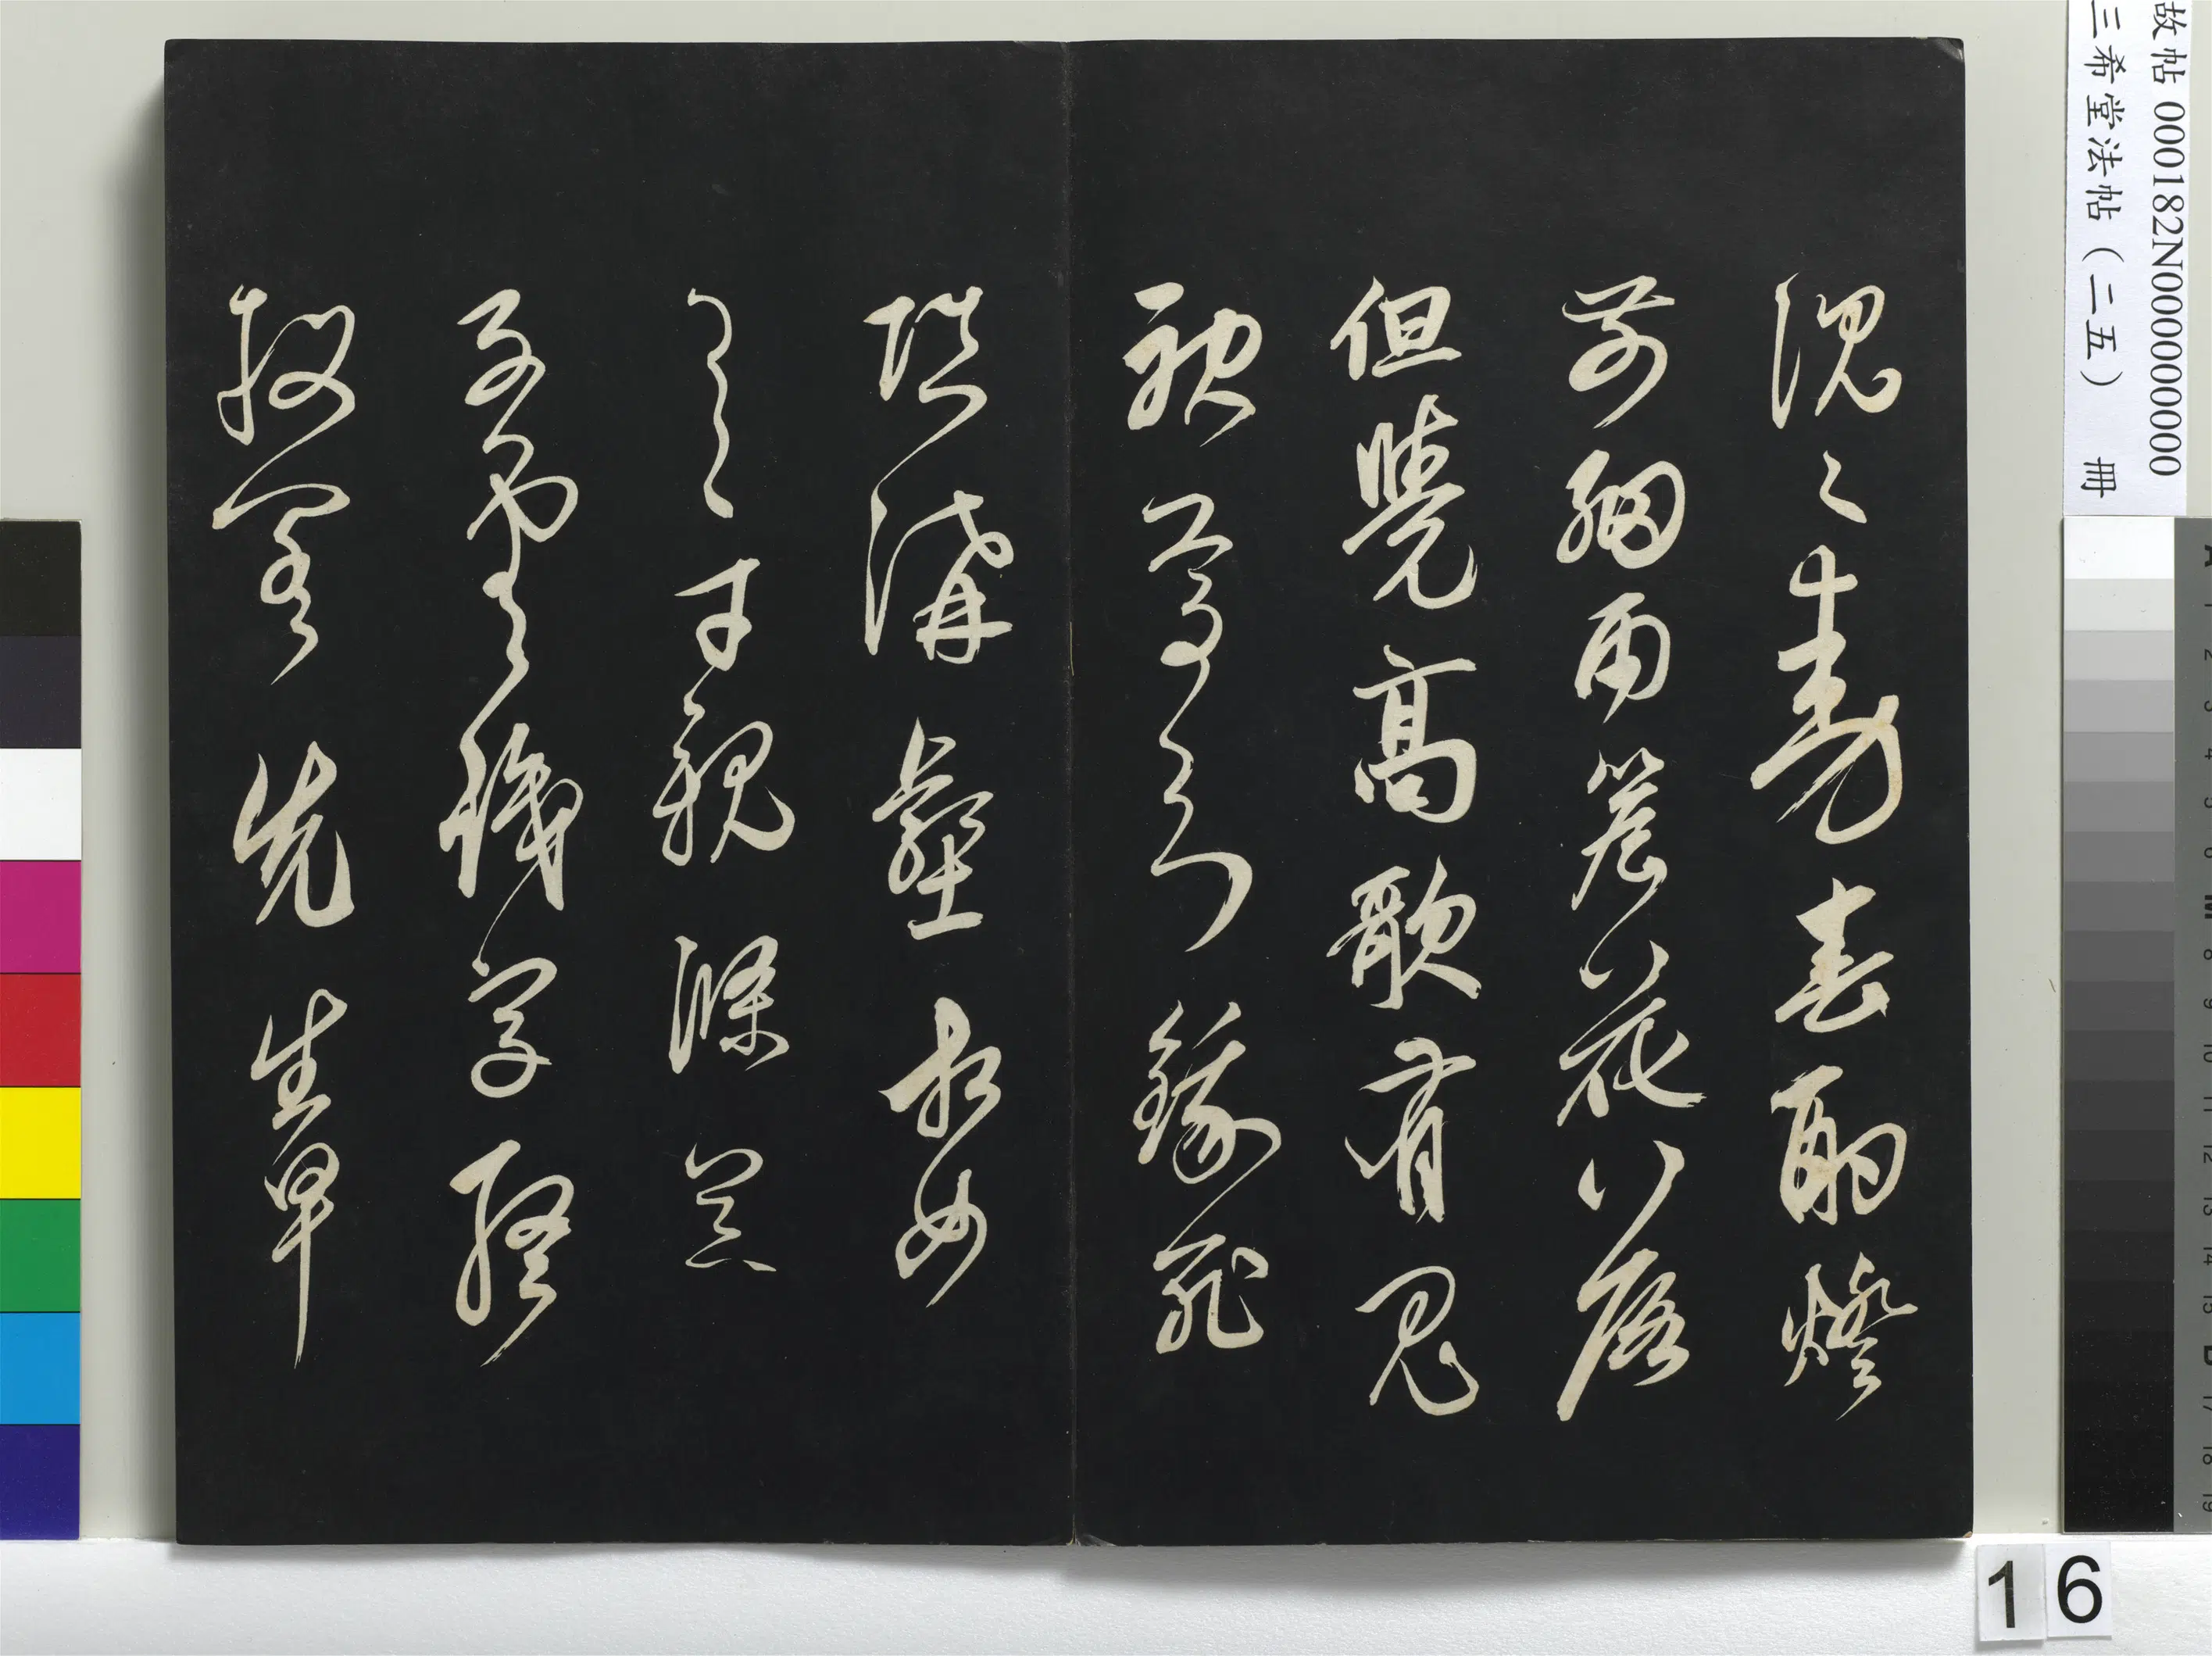 沉々動春酌燈
前細雨簷花落
但覺高歌有鬼
神焉知餓死
填溝壑相如
逸才親滌器
子雲識字終
投閣先生早
故帖 000182N000000000
三希堂法帖（二五） 冊
16